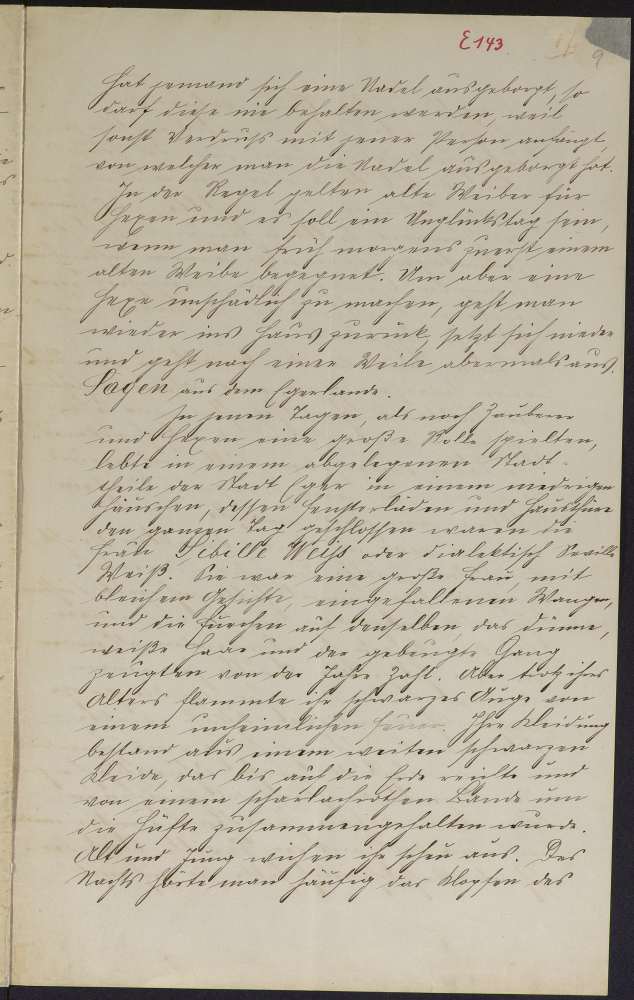 E 143
9
Hat jemand sich eine Nadel ausgeborgt, so
darf diese nie behalten werden, weil
sonst Verdruß mit jener Person anfängt,
von welcher man die Nadel ausgeborgt hat.
In der Regel gelten alte Weiber für
Hexen und es soll ein Unglückstag sein,
wenn man früh morgens zuerst einem
alten Weibe begegnet. Um aber eine
Hexe unschädlich zu machen, geht man
wieder ins Haus zurück, setzt sich nieder
und geht nach einer Weile abermals aus.
Sagen aus dem Egerlande.
In jenen Tagen, als noch Zauberer
und Hexen eine große Rolle spielten,
lebte in einem abgelegenen Stadt-
theile der Stadt Eger in einem niedrigen
Häuschen, dessen Fensterläden und Hausthüre
den ganzen Tag geschlossen waren die
Sibille Weiß oder dialektisch Sevilla
Weiß. Sie war eine große Frau, mit
bleichem Gesichte, eingefallenen Wangen,
und die Furchen auf denselben, das dünne,
weiße Haar und der gebeugte Gang
zeugten von der Jahre Zahl. Aber trotz ihres
Alters flammte ihr schwarzes Auge von
einem unheimlichen Feuer. Ihre Kleidung
bestand aus einem weiten schwarzen
Kleide, das bis auf die Erde reichte und
von einem scharlachrothen Bande um
die Hüfte zusammengehalten wurde.
Alt und Jung wichen ihr scheu aus. Des
Nachts hörte man häufig das Klopfen des